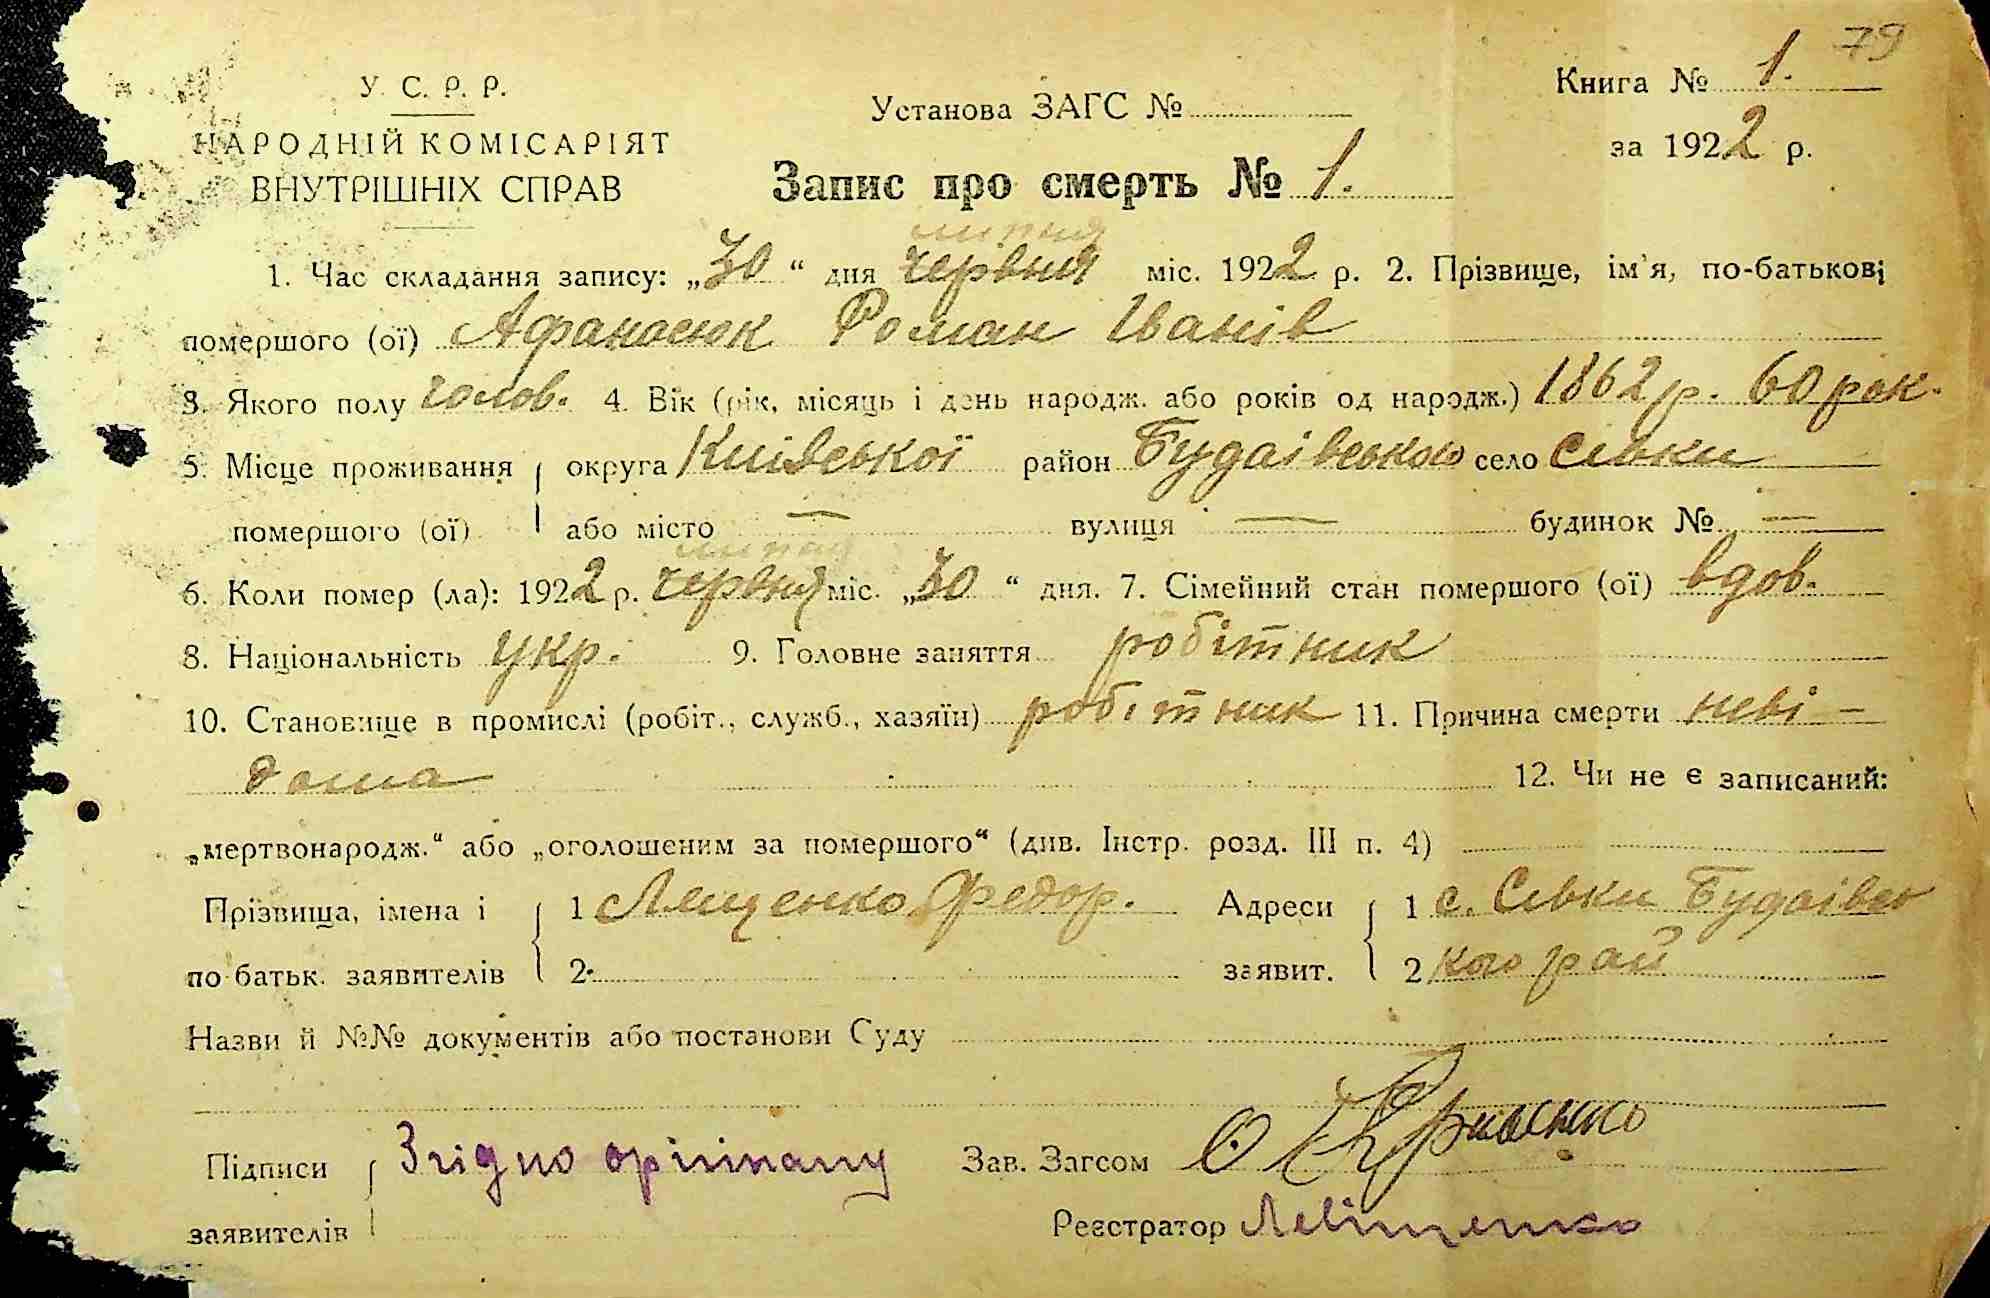 79
У. С. Р. Р.
НАРОДНІЙ КОМІСАРІЯТ
ВНУТРІШНІХ СПРАВ
Установа ЗАГС №
Книга № 1.
за 1922 р.
Запис про смерть № 1.
липня
1. Час складання запису: „30“ дня червня міс. 1922 р. 2. Прізвище, ім'я, по-батькові
помершого (ої) Афанасюк Роман Іванів
3. Якого полу чолов. 4. Вік (рік, місяць і день народж. або років од народж.) 1862 р. 60 рок.
5. Місце проживання округа Київської район Будаівського село Сівки
помершого (ої) або місто — вулиця — будинок № —
липня
6. Коли помер (ла): 1922 р. червня міс. „30“ дня. 7. Сімейний стан помершого (ої) вдов.
8. Національність укр. 9. Головне заняття робітник
10. Становище в промислі (робіт., служб., хазяїн) робітник 11. Причина смерти неві-
дома 12. Чи не є записаний:
„мертвонародж.“ або „оголошеним за помершого“ (див. Інстр. розд. III п. 4)
Прізвища, імена і 1 Лещенко Федор. Адреси 1 с. Сівки Будаівсь
по батьк. заявителів 2. заявит. 2 кого рай
Назви й №№ документів або постанови Суду
Підписи Згідно орігіналу Зав. Загсом
заявителів Реєстратор